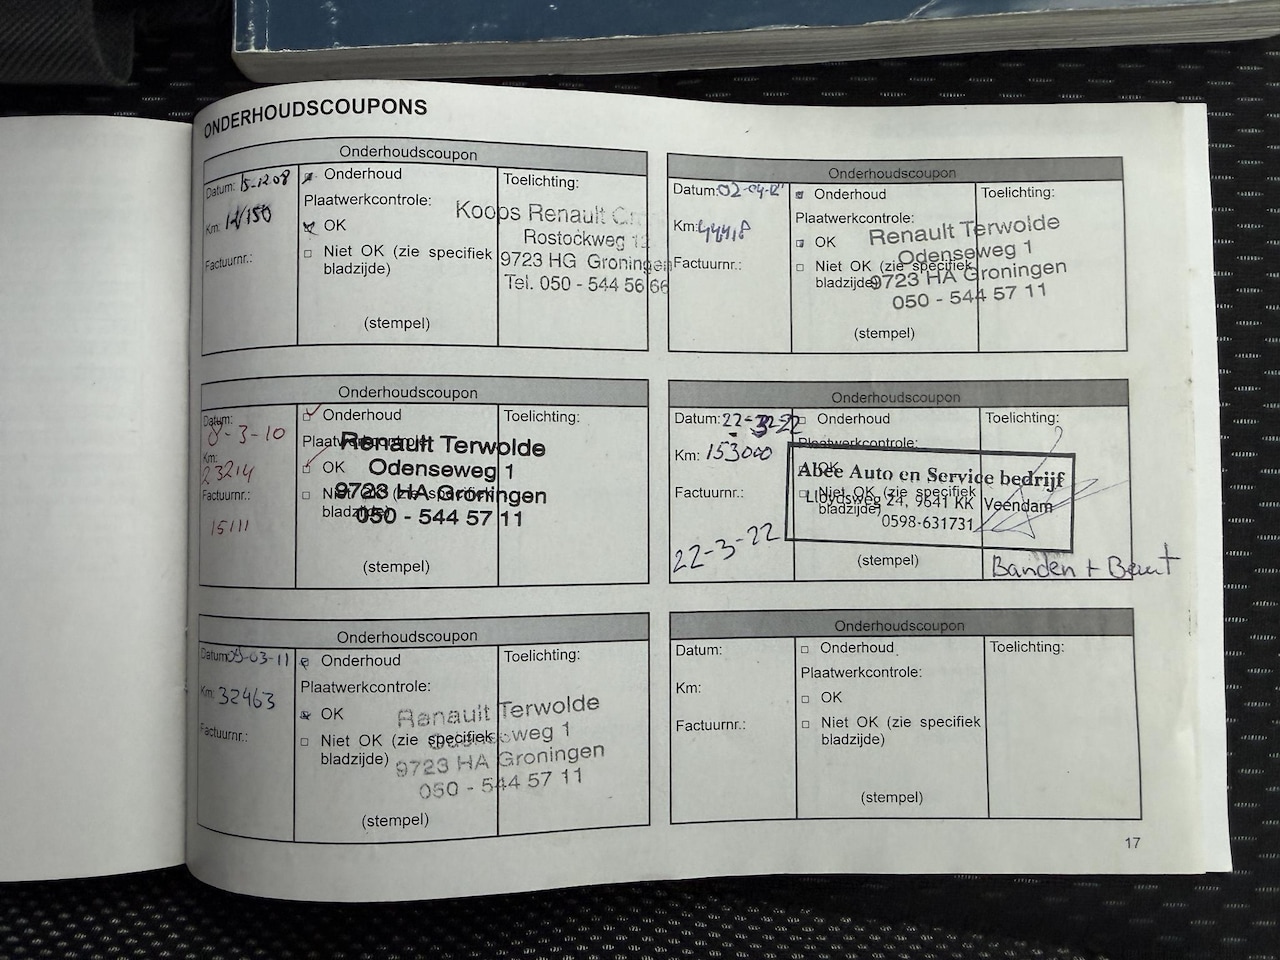 ONDERHOUDSCOUPONS
Onderhoudscoupon
Datum: 15-12 08
Km: 12/150
Factuurnr.:
Onderhoud
Plaatwerkcontrole:
OK
Niet OK (zie specifiek
bladzijde)
(stempel)
Toelichting:
Koops Renault
Rostockweg
9723 HG Groningen
Tel. 050 - 544 56 66
Onderhoudscoupon
Datum: 8-3-10
Km:
23214
Factuurnr.:
15111
Onderhoud
OK
(stempel)
Toelichting:
Renault Terwolde
Odenseweg 1
9723 HA Groningen
050 - 544 57 11
Onderhoudscoupon
Datum: 03-11
Km: 32463
Factuurnr.:
Onderhoud
Plaatwerkcontrole:
OK
Niet OK (zie specifiek
bladzijde)
(stempel)
Toelichting:
Renault Terwolde
Odenseweg 1
9723 HA Groningen
050 - 544 57 11
Onderhoudscoupon
Datum: 02-04-12
Km:
Factuurnr.:
Onderhoud
Plaatwerkcontrole:
OK
Niet OK (zie specifiek
bladzijde)
(stempel)
Toelichting:
Renault Terwolde
Odenseweg 1
9723 HA Groningen
050 - 544 57 11
Onderhoudscoupon
Datum: 22-3-22
Km: 153000
Factuurnr.:
22-3-22
Onderhoud
Plaatwerkcontrole:
OK
Niet OK (zie specifiek
bladzijde)
(stempel)
Toelichting:
Abee Auto en Service bedrijf
Lloydsweg 24, 9641 KK Veendam
0598-631731
Banden + Beurt
Onderhoudscoupon
Datum:
Km:
Factuurnr.:
Onderhoud
Plaatwerkcontrole:
OK
Niet OK (zie specifiek
bladzijde)
(stempel)
Toelichting:
17